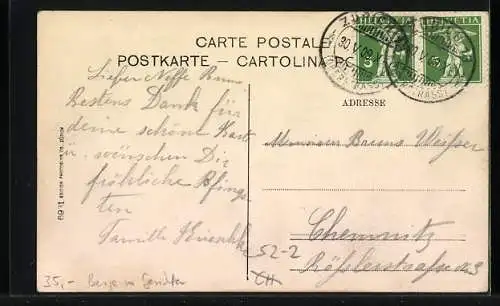 CARTE POSTALE
POSTKARTE - CARTOLINA PO
HELVETIA HELVETIA
30.V.09
ADRESSE
Lieber Neffe Bruno
Bestens Dank für
deine schöne Kart
u. wünschen Dir
fröhliche Pfings
ten
Familie
Monsieur Bruno Weisser
Chemnitz
Rösslerstrasse
52-2
CH
35,-